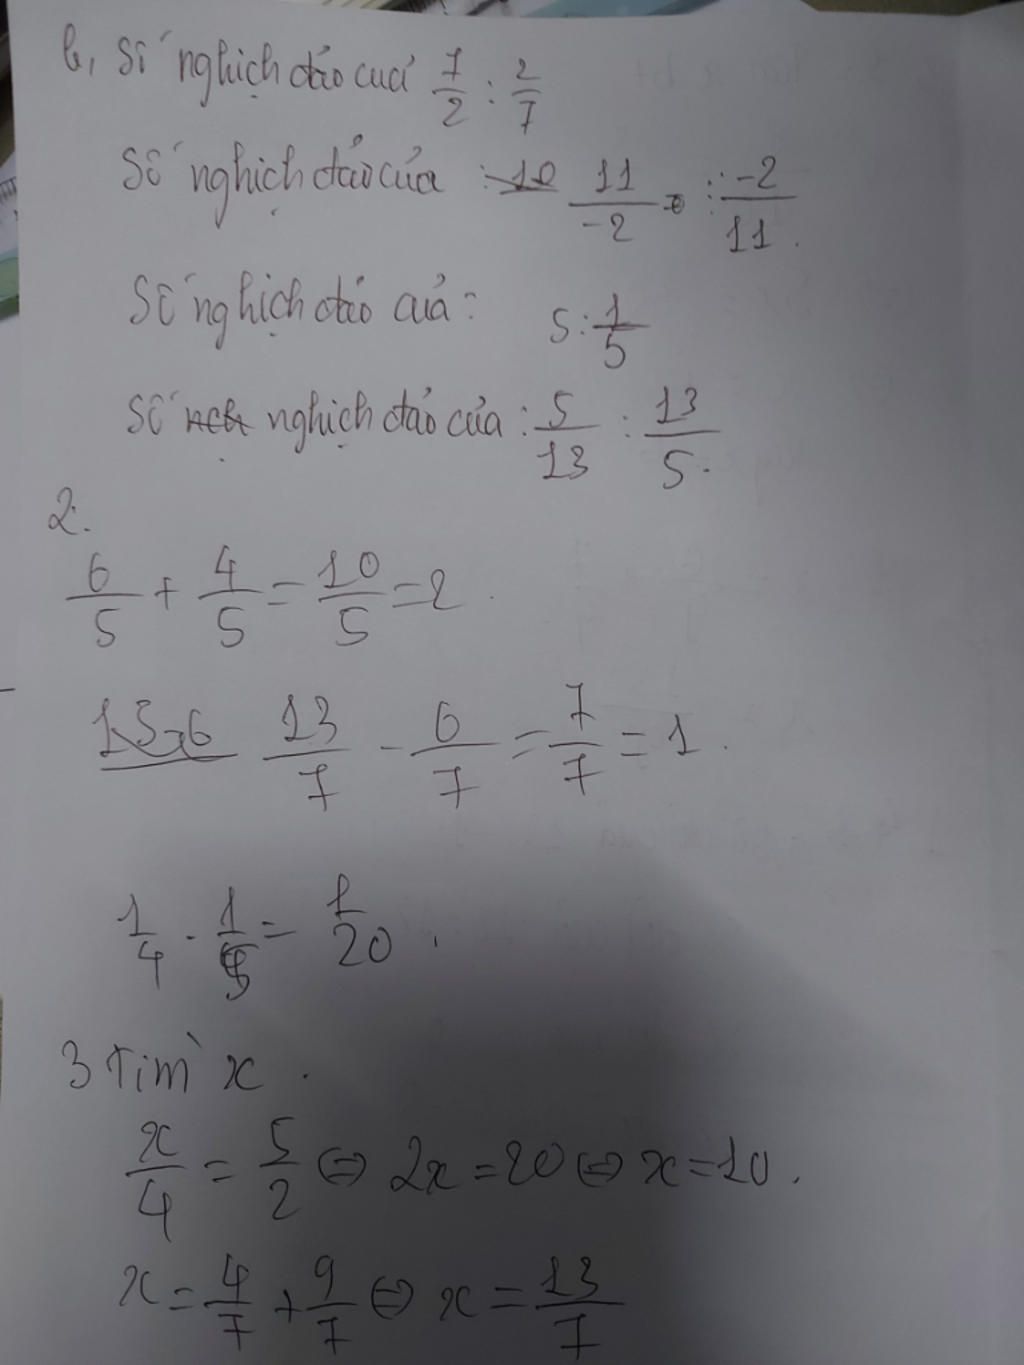 b, Số nghịch đảo cuả 7/2 : 2/7
Số nghịch đảo của : 11/-2 : -2/11.
Số nghịch đảo cuả : 5 : 1/5
Số nghịch đảo của : 5/13 : 13/5.
2.
6/5 + 4/5 = 10/5 = 2.
13/7 - 6/7 = 7/7 = 1.
1/4 . 1/5 = 1/20.
3 Tìm x.
x/4 = 5/2 ⇔ 2x = 20 ⇔ x = 10.
x = 4/7 + 9/7 ⇔ x = 13/7